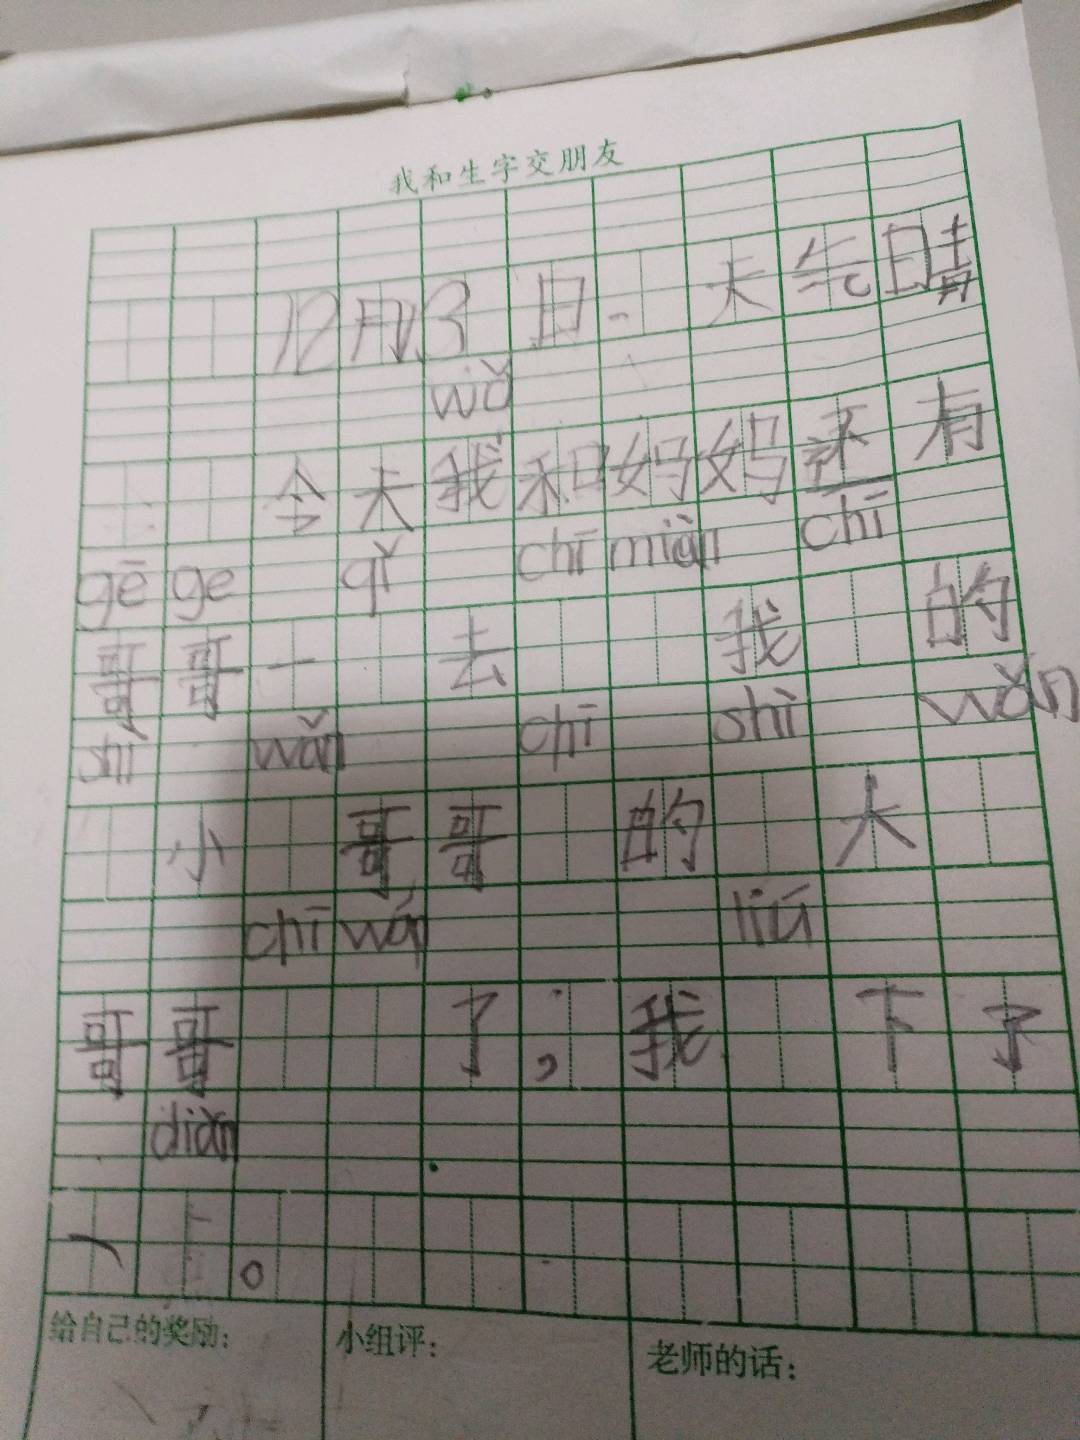 我和生字交朋友
12月13日、天气晴
wǒ
今天我和妈妈还有
gē ge qǐ chī miàn chī
哥哥一 去 我 的
shì wǎn chī shì wǎn
小 哥哥 的 大
chī wán liú
哥哥 了，我 下了
diǎn
。
给自己的奖励：
小组评：
老师的话：